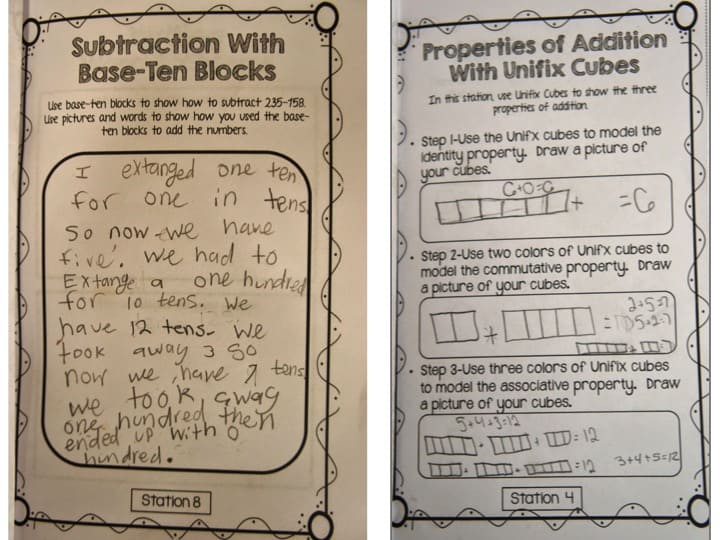 Subtraction With
Base-Ten Blocks
Use base-ten blocks to show how to subtract 235-158.
Use pictures and words to show how you used the base-
ten blocks to add the numbers.
I extanged one ten
for one in tens.
So now we have
five. We had to
Extange a one hundred
for 10 tens. We
have 12 tens. We
took away 3 so
now we have 7 tens
we took away
one hundred then
ended up with 0
hundred.
Station 8
Properties of Addition
With Unifix Cubes
In this station, use Unifix Cubes to show the three
properties of addition.
• Step 1-Use the Unifx cubes to model the
identity property. Draw a picture of
your cubes.
6+0=6
+ =6
• Step 2-Use two colors of Unifx cubes to
model the commutative property. Draw
a picture of your cubes.
2+5=7
+ = 5+2=7
+ =7
• Step 3-Use three colors of Unifix cubes
to model the associative property. Draw
a picture of your cubes.
5+4+3=12
+ + =12
+ + =12 3+4+5=12
Station 4